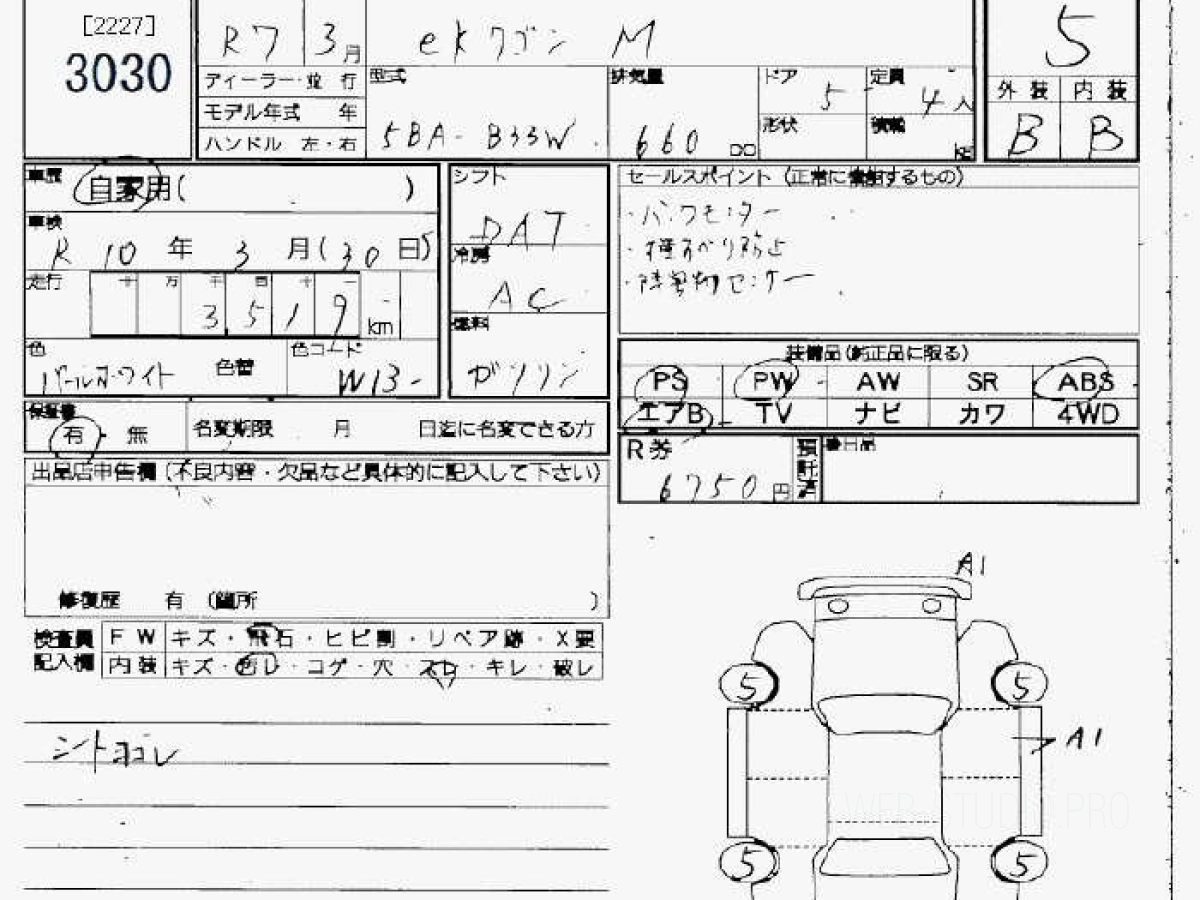 [2227]
3030
R7 3月 ekワゴン M
5
ディーラー・並行 型式 排気量 ドア 5 定員 4人
外装 内装
モデル年式 年
ハンドル 左・右
5BA-B33W 660 cc 形状 積載 kg
B B
車歴 自家用( )
シフト DAT
セールスポイント (正常に機能するもの)
・バックモニター
・障害物センサー
車検 R 10年 3月(30日)
冷房 AC
走行 十 万 千 百 十 一
3519 km
燃料 ガソリン
色 パールホワイト 色替 色コード W13
装備品(純正品に限る)
PS PW AW SR ABS
エアB TV ナビ カワ 4WD
保証書 有・無 名変期限 月 日迄に名変できる方
R券 6750円 預託済
出品店申告欄(不良内容・欠品など具体的に記入して下さい)
修復歴 有 (箇所 )
検査員記入欄
FW キズ・飛石・ヒビ割・リペア跡・X要
内装 キズ・汚レ・コゲ・穴・スレ・キレ・破レ
シートヨゴレ
A1
5 5
A1
WEB-STUDIO.PRO
5 5